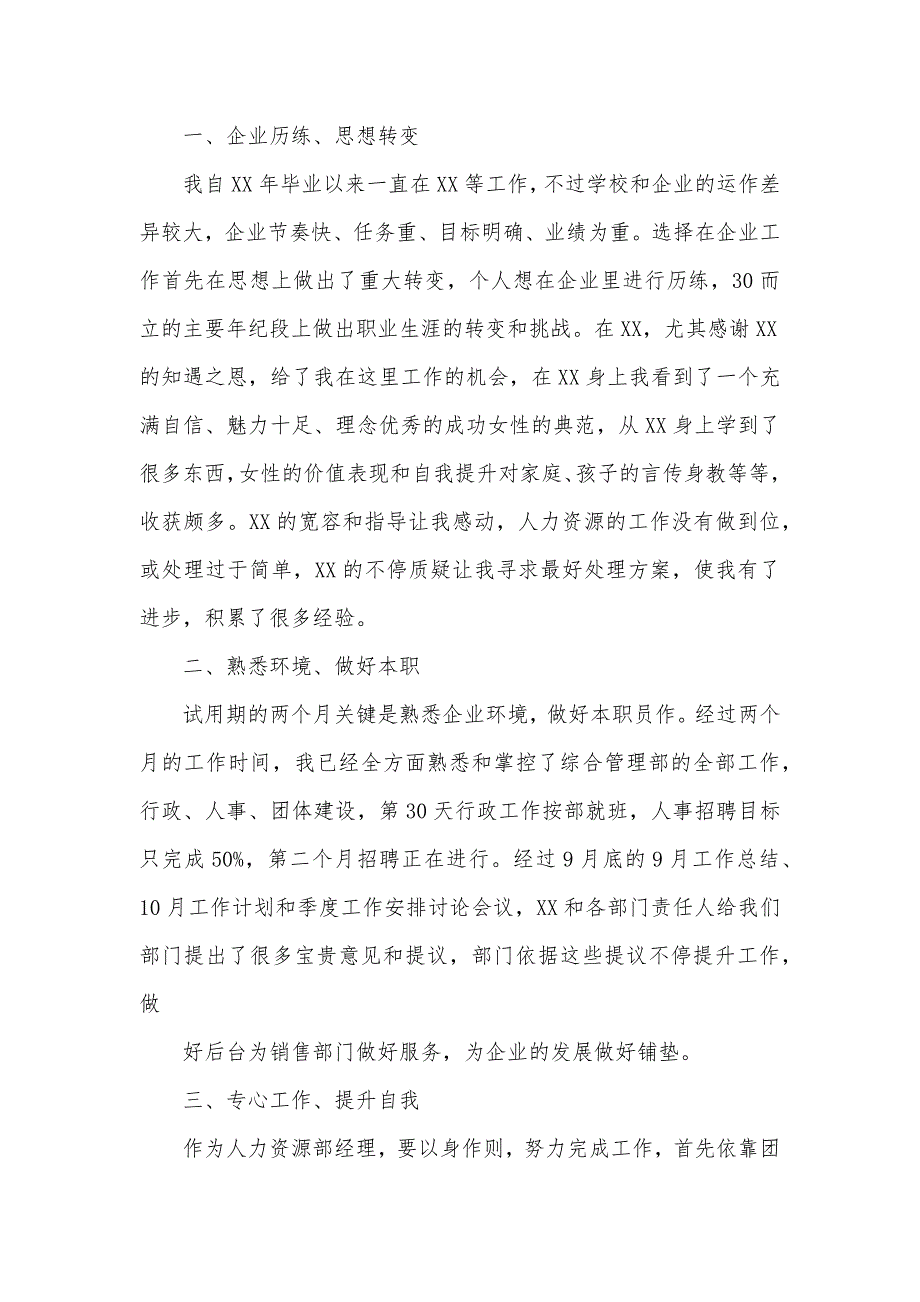 一、企业历练、思想转变
我自XX年毕业以来一直在XX等工作，不过学校和企业的运作差
异较大，企业节奏快、任务重、目标明确、业绩为重。选择在企业工
作首先在思想上做出了重大转变，个人想在企业里进行历练，30而
立的主要年纪段上做出职业生涯的转变和挑战。在XX，尤其感谢XX
的知遇之恩，给了我在这里工作的机会，在XX身上我看到了一个充
满自信、魅力十足、理念优秀的成功女性的典范，从XX身上学到了
很多东西，女性的价值表现和自我提升对家庭、孩子的言传身教等等，
收获颇多。XX的宽容和指导让我感动，人力资源的工作没有做到位，
或处理过于简单，XX的不停质疑让我寻求最好处理方案，使我有了
进步，积累了很多经验。
二、熟悉环境、做好本职
试用期的两个月关键是熟悉企业环境，做好本职员作。经过两个
月的工作时间，我已经全方面熟悉和掌控了综合管理部的全部工作，
行政、人事、团体建设，第30天行政工作按部就班，人事招聘目标
只完成50%，第二个月招聘正在进行。经过9月底的9月工作总结、
10月工作计划和季度工作安排讨论会议，XX和各部门责任人给我们
部门提出了很多宝贵意见和提议，部门依据这些提议不停提升工作，
做
好后台为销售部门做好服务，为企业的发展做好铺垫。
三、专心工作、提升自我
作为人力资源部经理，要以身作则，努力完成工作，首先依靠团